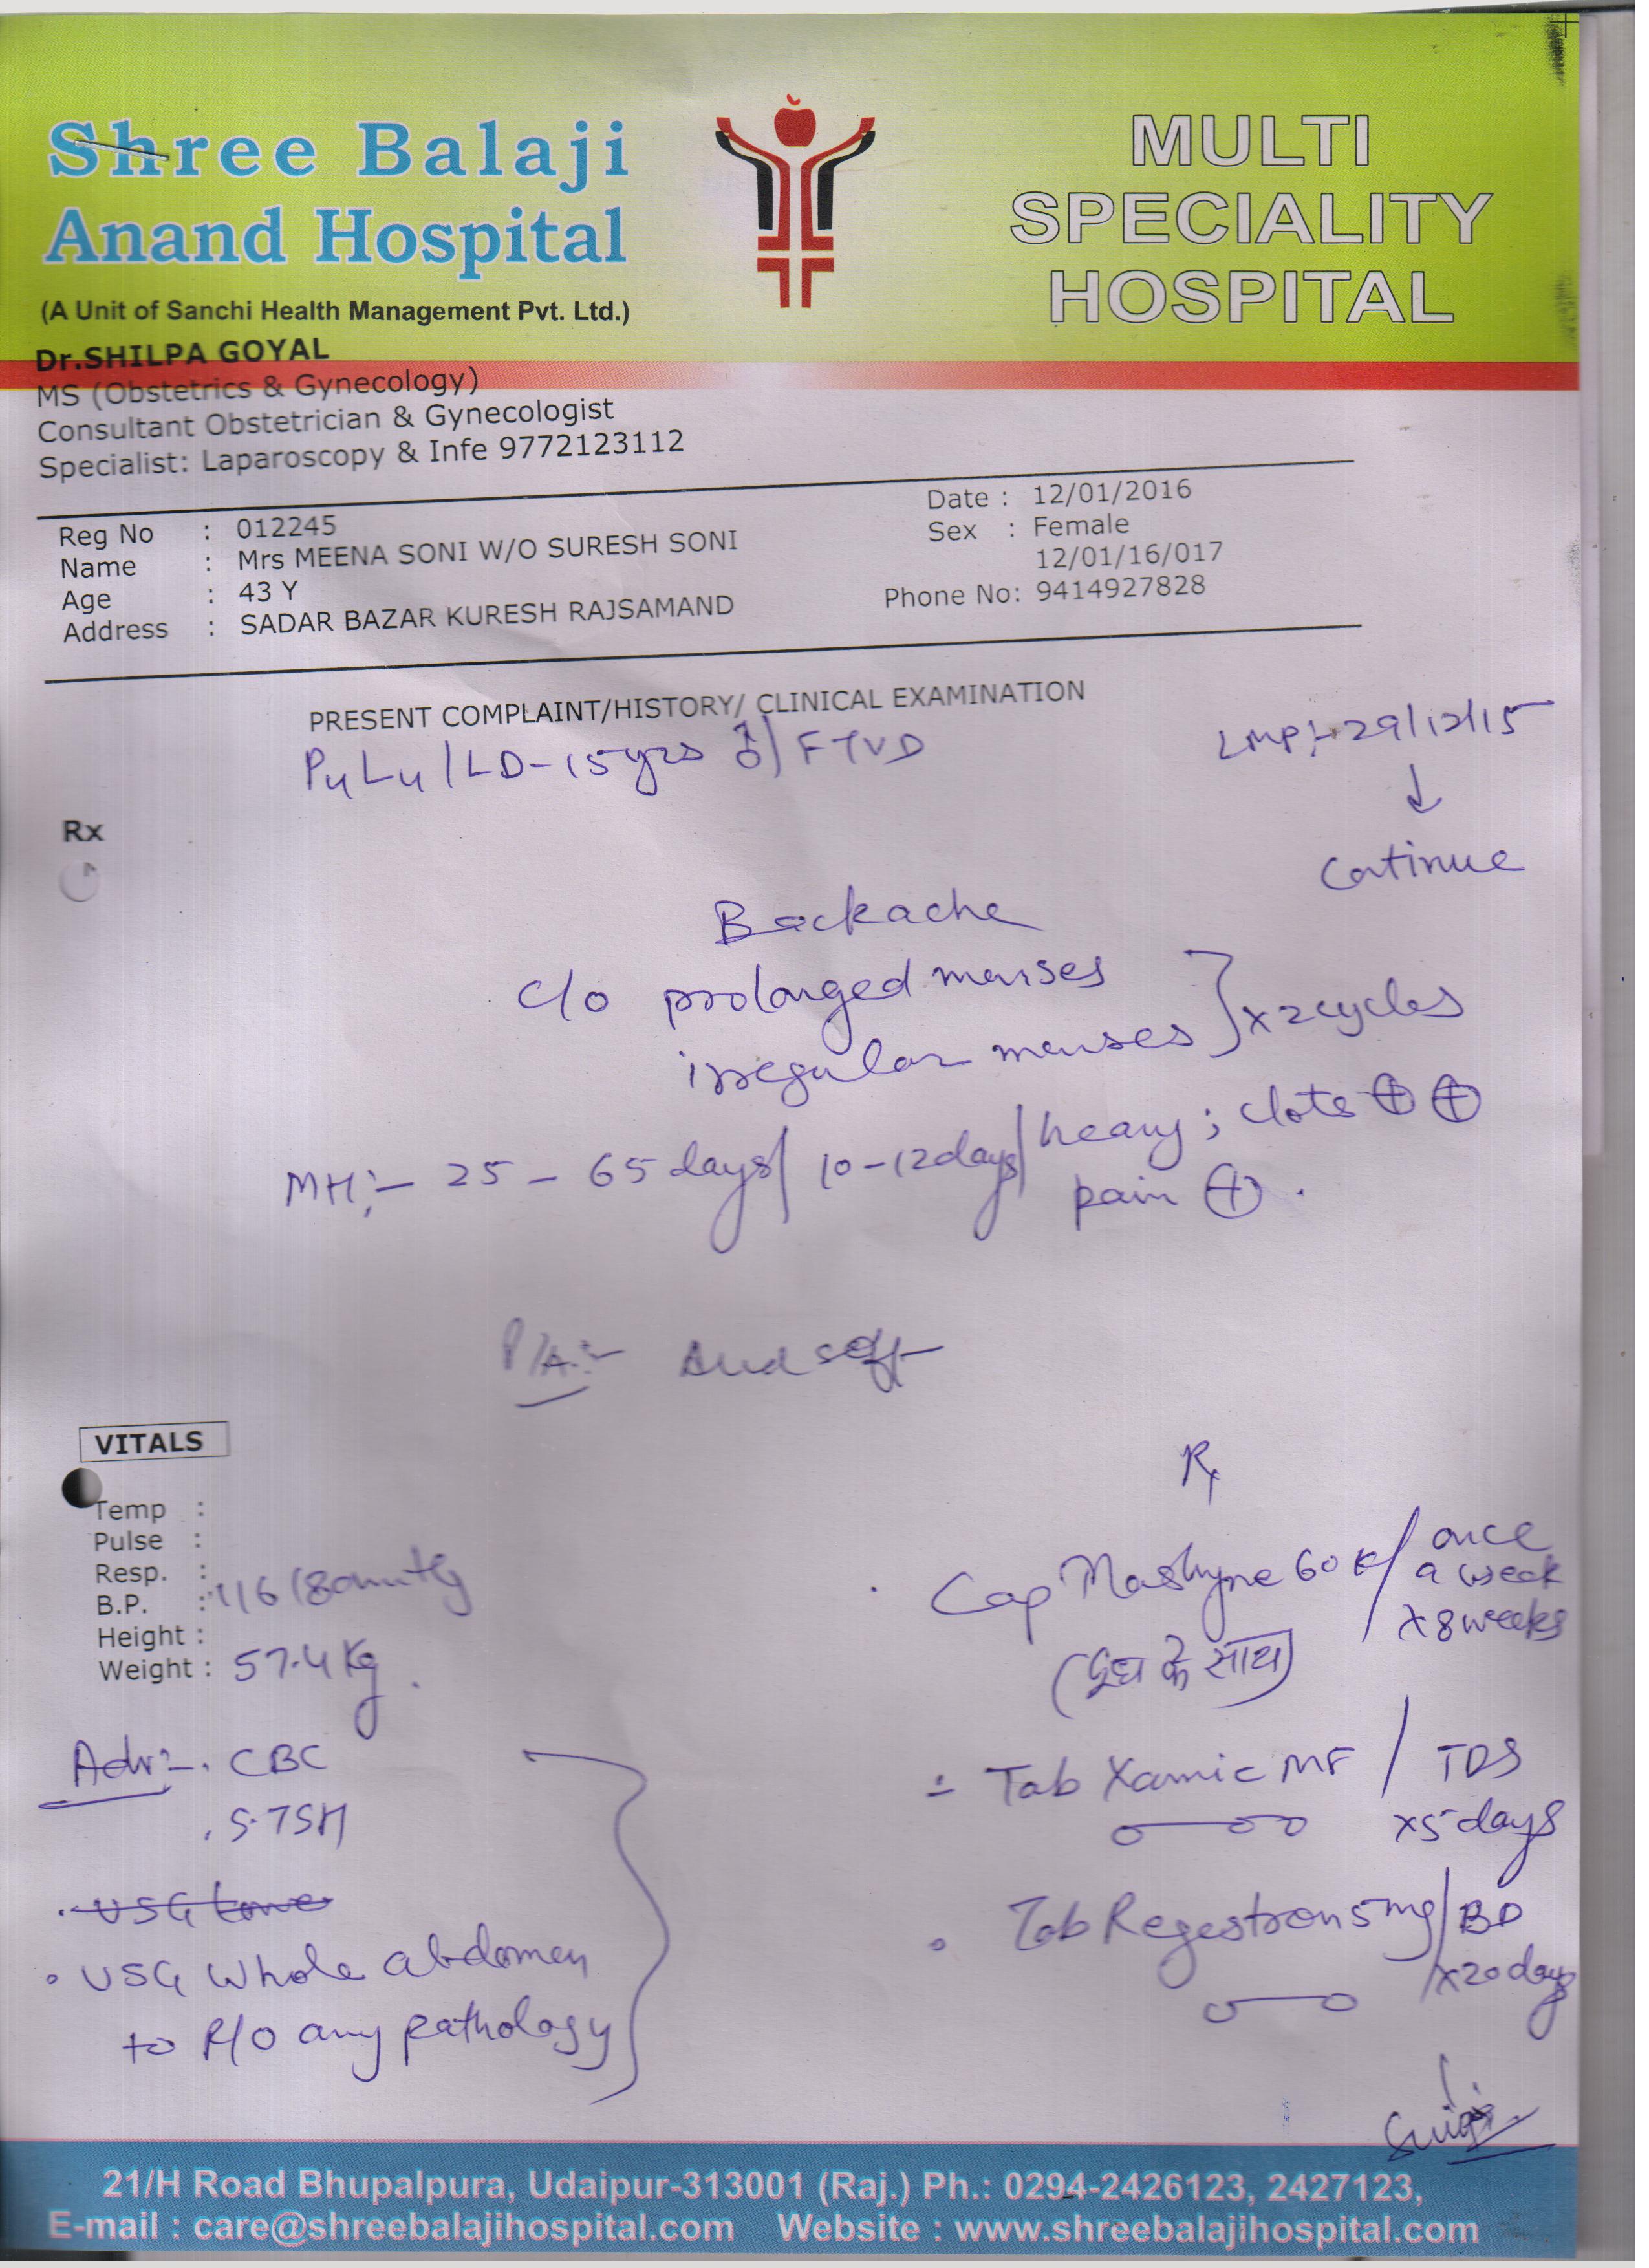 Shree Balaji
Anand Hospital
(A Unit of Sanchi Health Management Pvt. Ltd.)
MULTI
SPECIALITY
HOSPITAL
Dr.SHILPA GOYAL
MS (Obstetrics & Gynecology)
Consultant Obstetrician & Gynecologist
Specialist: Laparoscopy & Infe 9772123112
Reg No : 012245
Name : Mrs MEENA SONI W/O SURESH SONI
Age : 43 Y
Address : SADAR BAZAR KURESH RAJSAMAND
Date : 12/01/2016
Sex : Female
12/01/16/017
Phone No: 9414927828
PRESENT COMPLAINT/HISTORY/ CLINICAL EXAMINATION
P4L4 / LD-15yrs ♂ / FTVD
LMP:- 29/12/15
↓
Continue
Rx
Backache
c/o prolonged menses
irregular menses } x 2 cycles
MH:- 25 - 65 days / 10-12 days / heavy; clots ⊕ ⊕
pain ⊕.
P/A:- soft
VITALS
Temp :
Pulse :
Resp. :
B.P. : 116/80mmHg
Height :
Weight : 57.4 Kg.
Adv:- . CBC
. S.TSH
. USG Lower
. USG Whole abdomen
to R/O any pathology
Rx
. Cap 60K / once
a week
x 8 weeks
(दूध के साथ)
- Tab Xamic MF / TDS
x5 days
. Tab Regestron 5mg / BD
x20 days
21/H Road Bhupalpura, Udaipur-313001 (Raj.) Ph.: 0294-2426123, 2427123,
E-mail : care@shreebalajihospital.com Website : www.shreebalajihospital.com